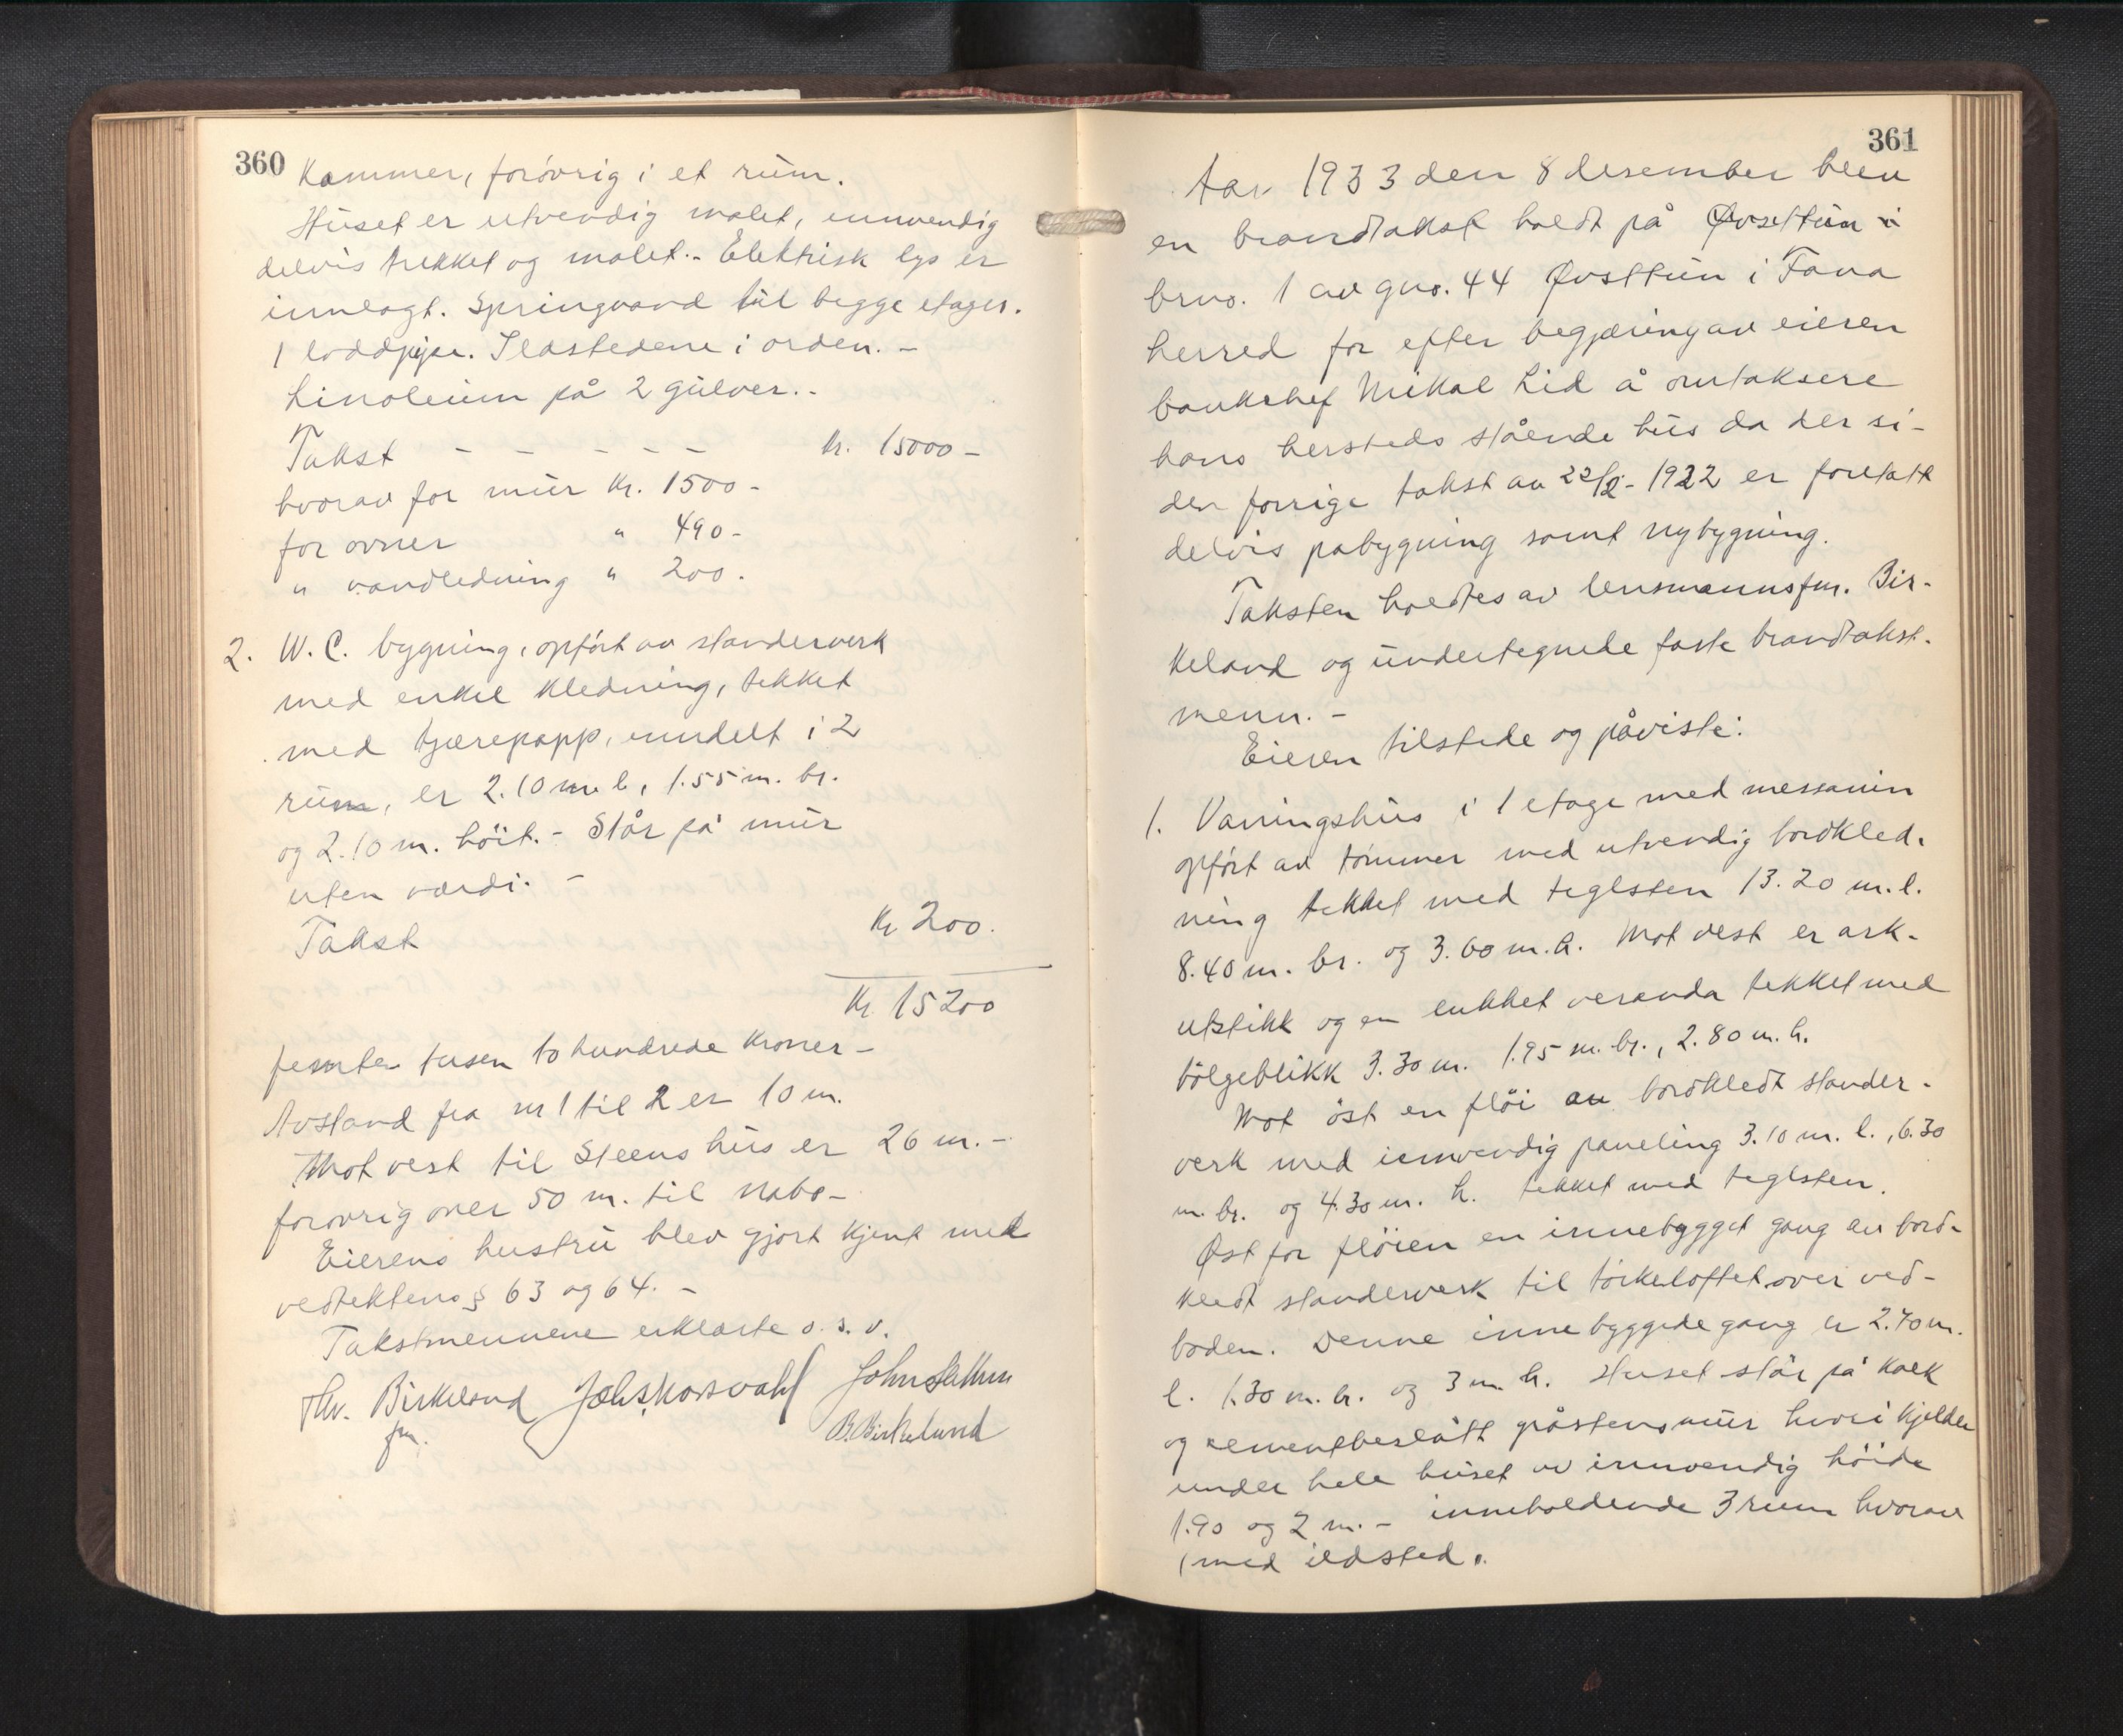 360
Kammer, forøvrig i et rum.
Huset er utvendig malet, innvendig
delvis trekket og malet.- Elektrisk lys er
innlagt. Springvand til begge etager.
1 loddpipe. Ildstedene i orden. -
Linoleum på 2 gulver. -
Takst - - - - - Kr. 15000 -
hvorav for mur Kr. 1500 -
for ovner " 490 -
" vandledning " 200.
2. W.C. bygning, opført av standerverk
med enkel kledning, tekket
med tjærepapp, inndelt i 2
rum, er 2.10 m. l, 1.55 m. br.
og 2.10 m. høit. - Står på mur
uten værdi. -
Takst Kr 200.
Kr. 15200
femten tusen to hundrede kroner -
Avstand fra nr 1 til 2 er 10 m.
Mot vest til Steens hus er 26 m. -
forøvrig over 50 m. til nabo -
Eierens hustru blev gjort kjent med
vedtektens § 63 og 64. -
Takstmennene erklærte o.s.v.
Thv. Birkeland
fm.
B. Birkelund
361
Aar 1933 den 8 desember blev
en brandtakst holdt på Øvsttun i
brno. 1 av gno. 44 Øvsttun i Fana
herred for efter begjæring av eieren
bankchef Mikal Lid å omtaksere
hans hersteds stående hus da der si-
den forrige takst av 22/2 - 1922 er foretatt
delvis påbygning samt nybygning.
Taksten holdtes av lensmannsfm. Bir-
keland og undertegnede faste brandtakst-
menn. -
Eieren tilstede og påviste:
1. Vaaningshus i 1 etage med messanin
opført av tømmer med utvendig bordkled-
ning tekket med teglsten 13.20 m. l.
8.40 m. br. og 3.60 m. h. Mot vest er ark-
utstikk og en lukket veranda tekket med
bølgeblikk 3.30 m. 1.95 m. br., 2.80 m. h.
Mot øst en fløi av bordkledt stander-
verk med innvendig paneling 3.10 m. l., 6.30
m. br. og 4.30 m. h. tekket med teglsten.
Øst for fløien en innebygget gang av bord-
kledt standerverk til tørkeloftet over ved-
boden. Denne innebyggede gang er 2.70 m.
l. 1.30 m. br. og 3 m. h. Huset står på kalk
og sementbeslått gråstensmur hvori kjelder
under hele huset av innvendig høide
1.90 og 2 m. - inneholdende 3 rum hvorav
1 med ildsted.